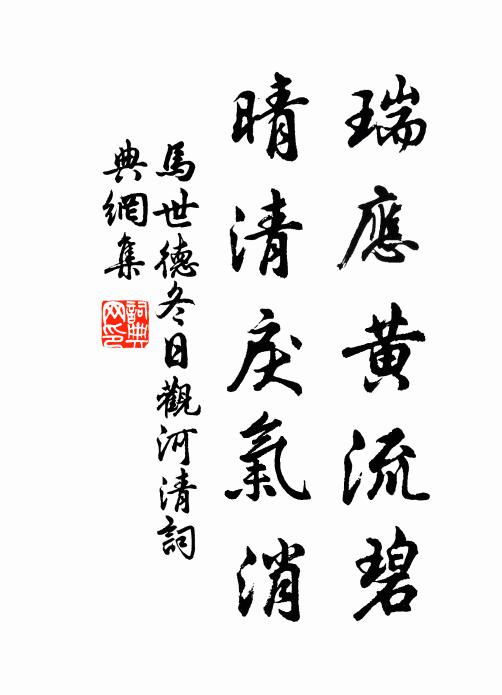 瑞應黃流碧
晴清戾氣消
馬世德冬日觀河清詞
典網集
詞典網印